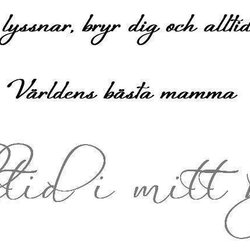 lyssnar, bryr dig och alltid
Världens bästa mamma
ltid i mitt